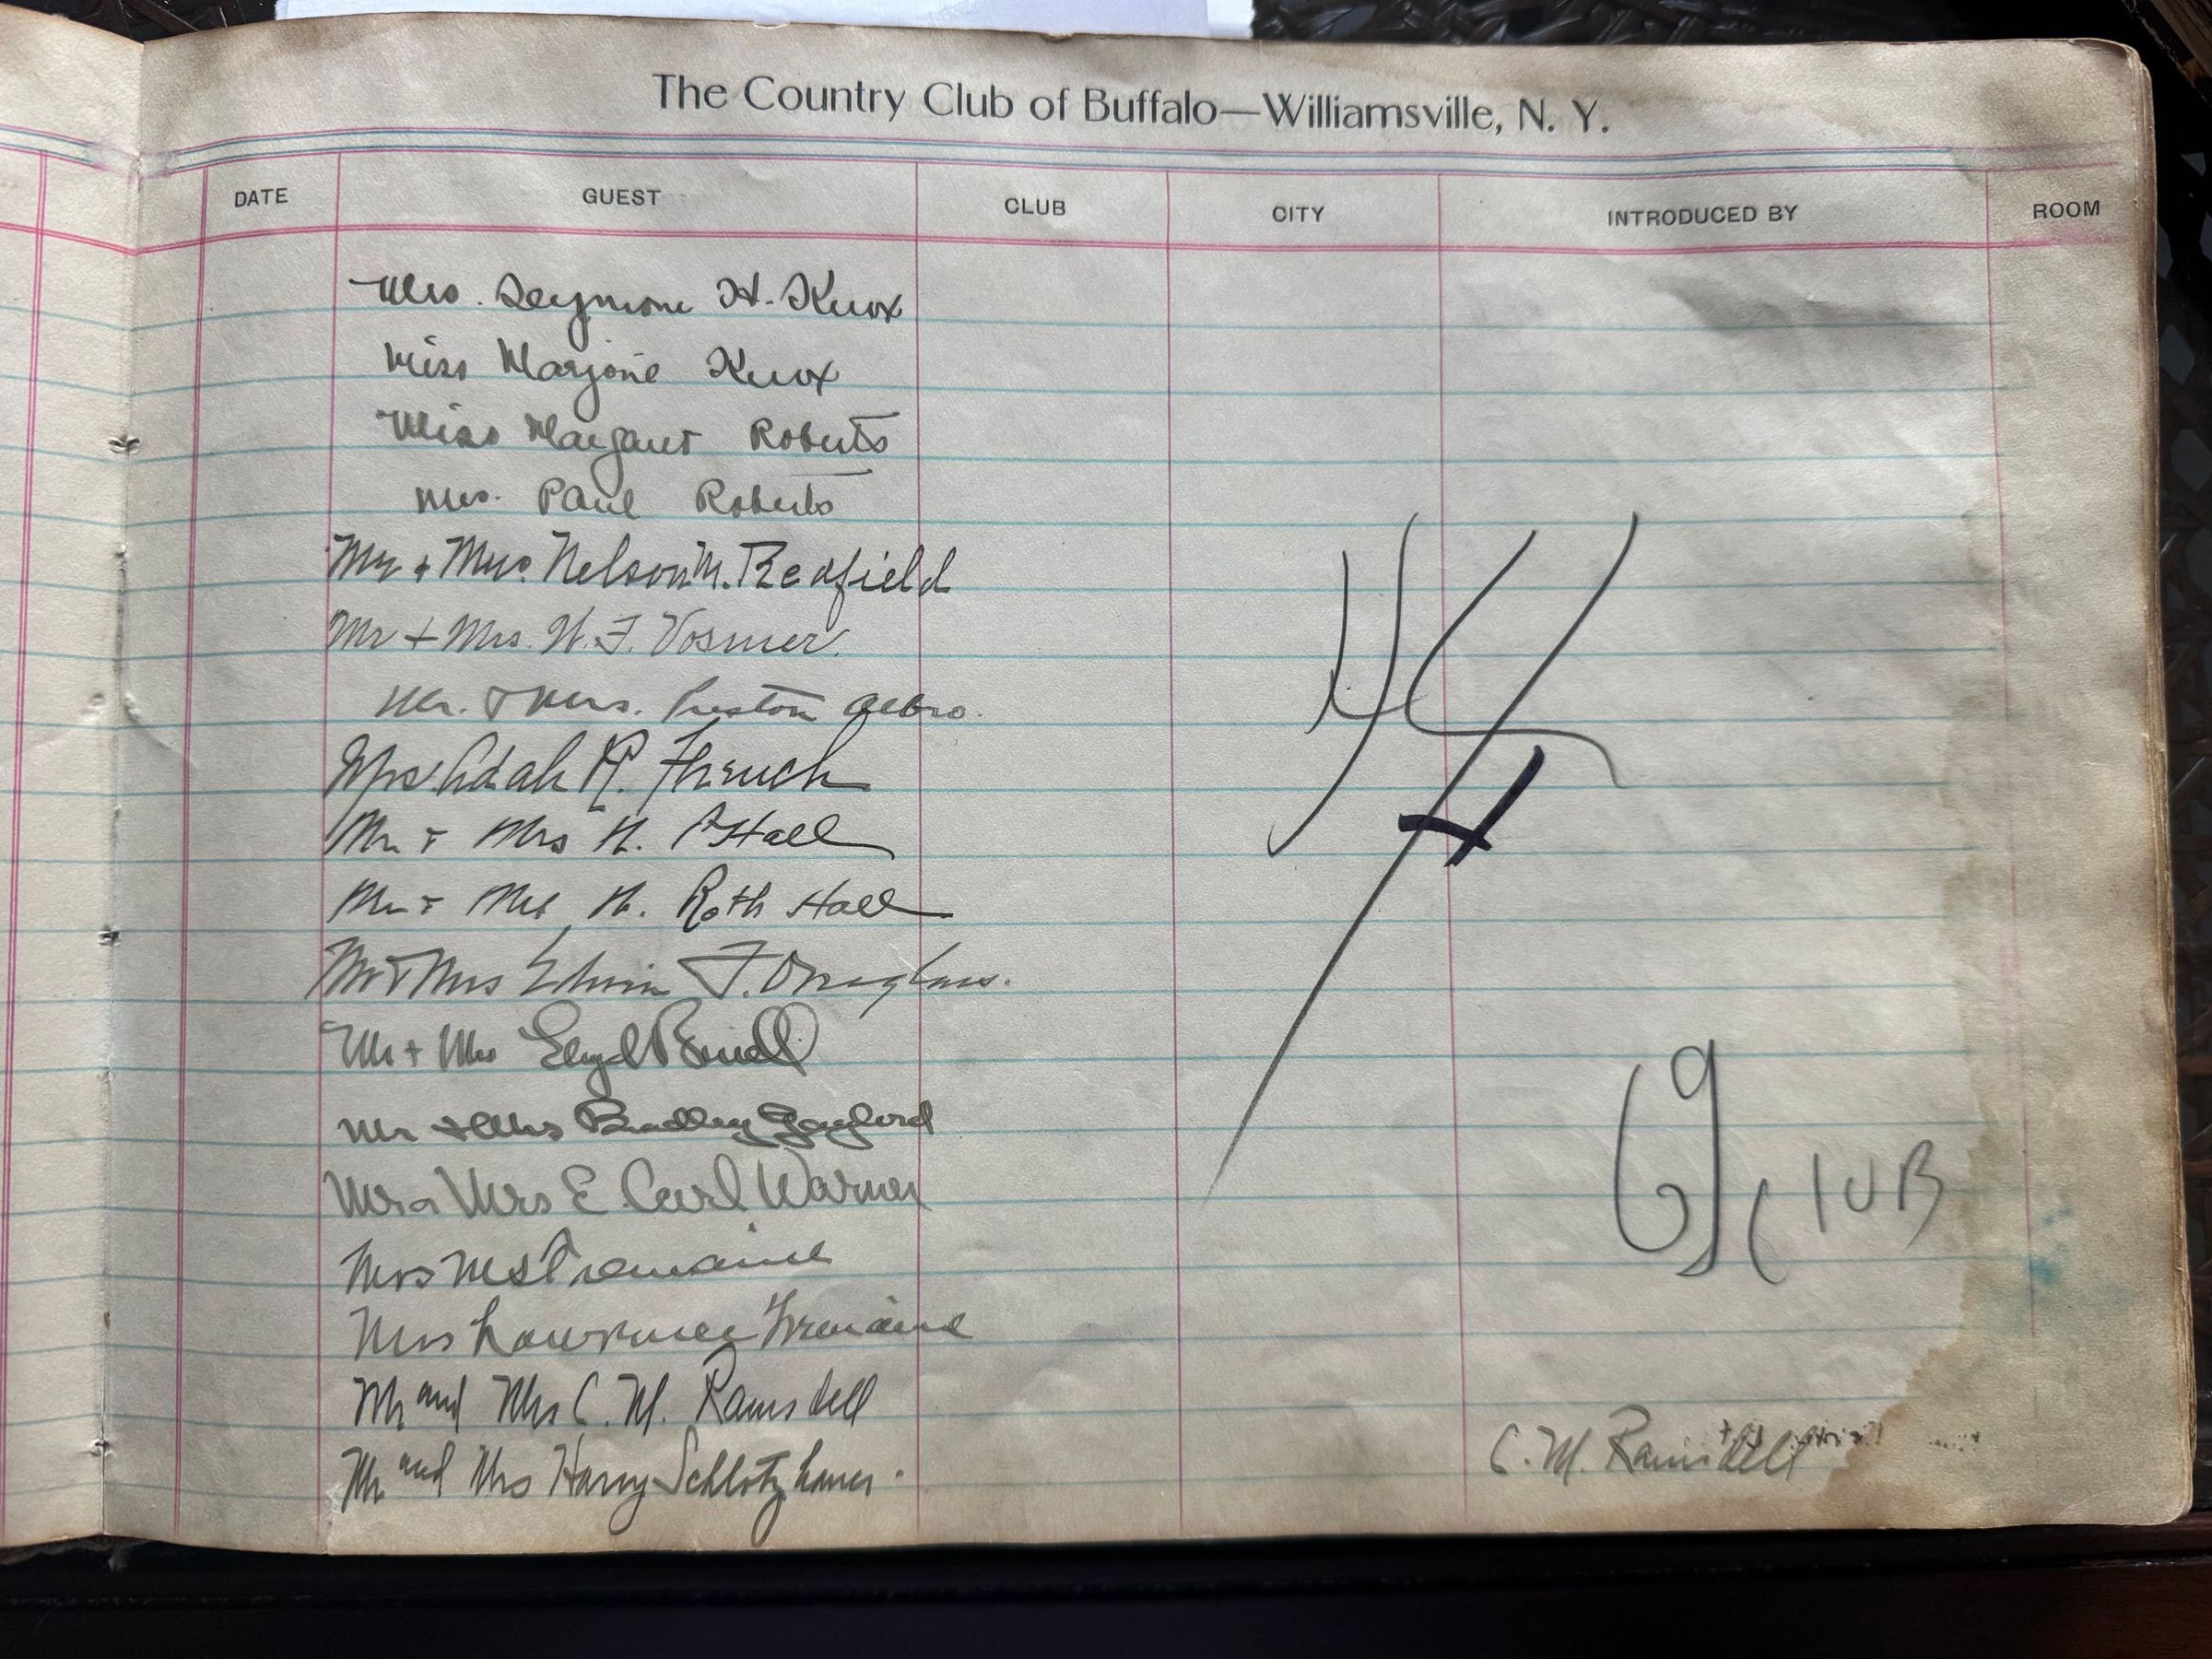 The Country Club of Buffalo—Williamsville, N. Y.
DATE GUEST CLUB CITY INTRODUCED BY ROOM
Mrs. Seymour H. Knox
Miss Marjorie Knox
Miss Margaret Roberts
Mrs. Paul Roberts
Mr + Mrs. Nelson M. Redfield
Mr + Mrs. W. F. Vosmer.
Mr. & Mrs. Preston Albro.
Mrs Adah R. French
Mr. & Mrs N. Hall
Mr & Mrs N. Roth Hall
Mr & Mrs F. Douglass.
Mr + Mrs
Mr + Mrs Bradley Gaylord
Mr & Mrs E Carl Warner
Mrs Tremaine
Mrs Lawrence Tremaine
Mr and Mrs C. M. Ramsdell
C. M. Ramsdell
Mr and Mrs Harry Schlotzhauer.
CLUB